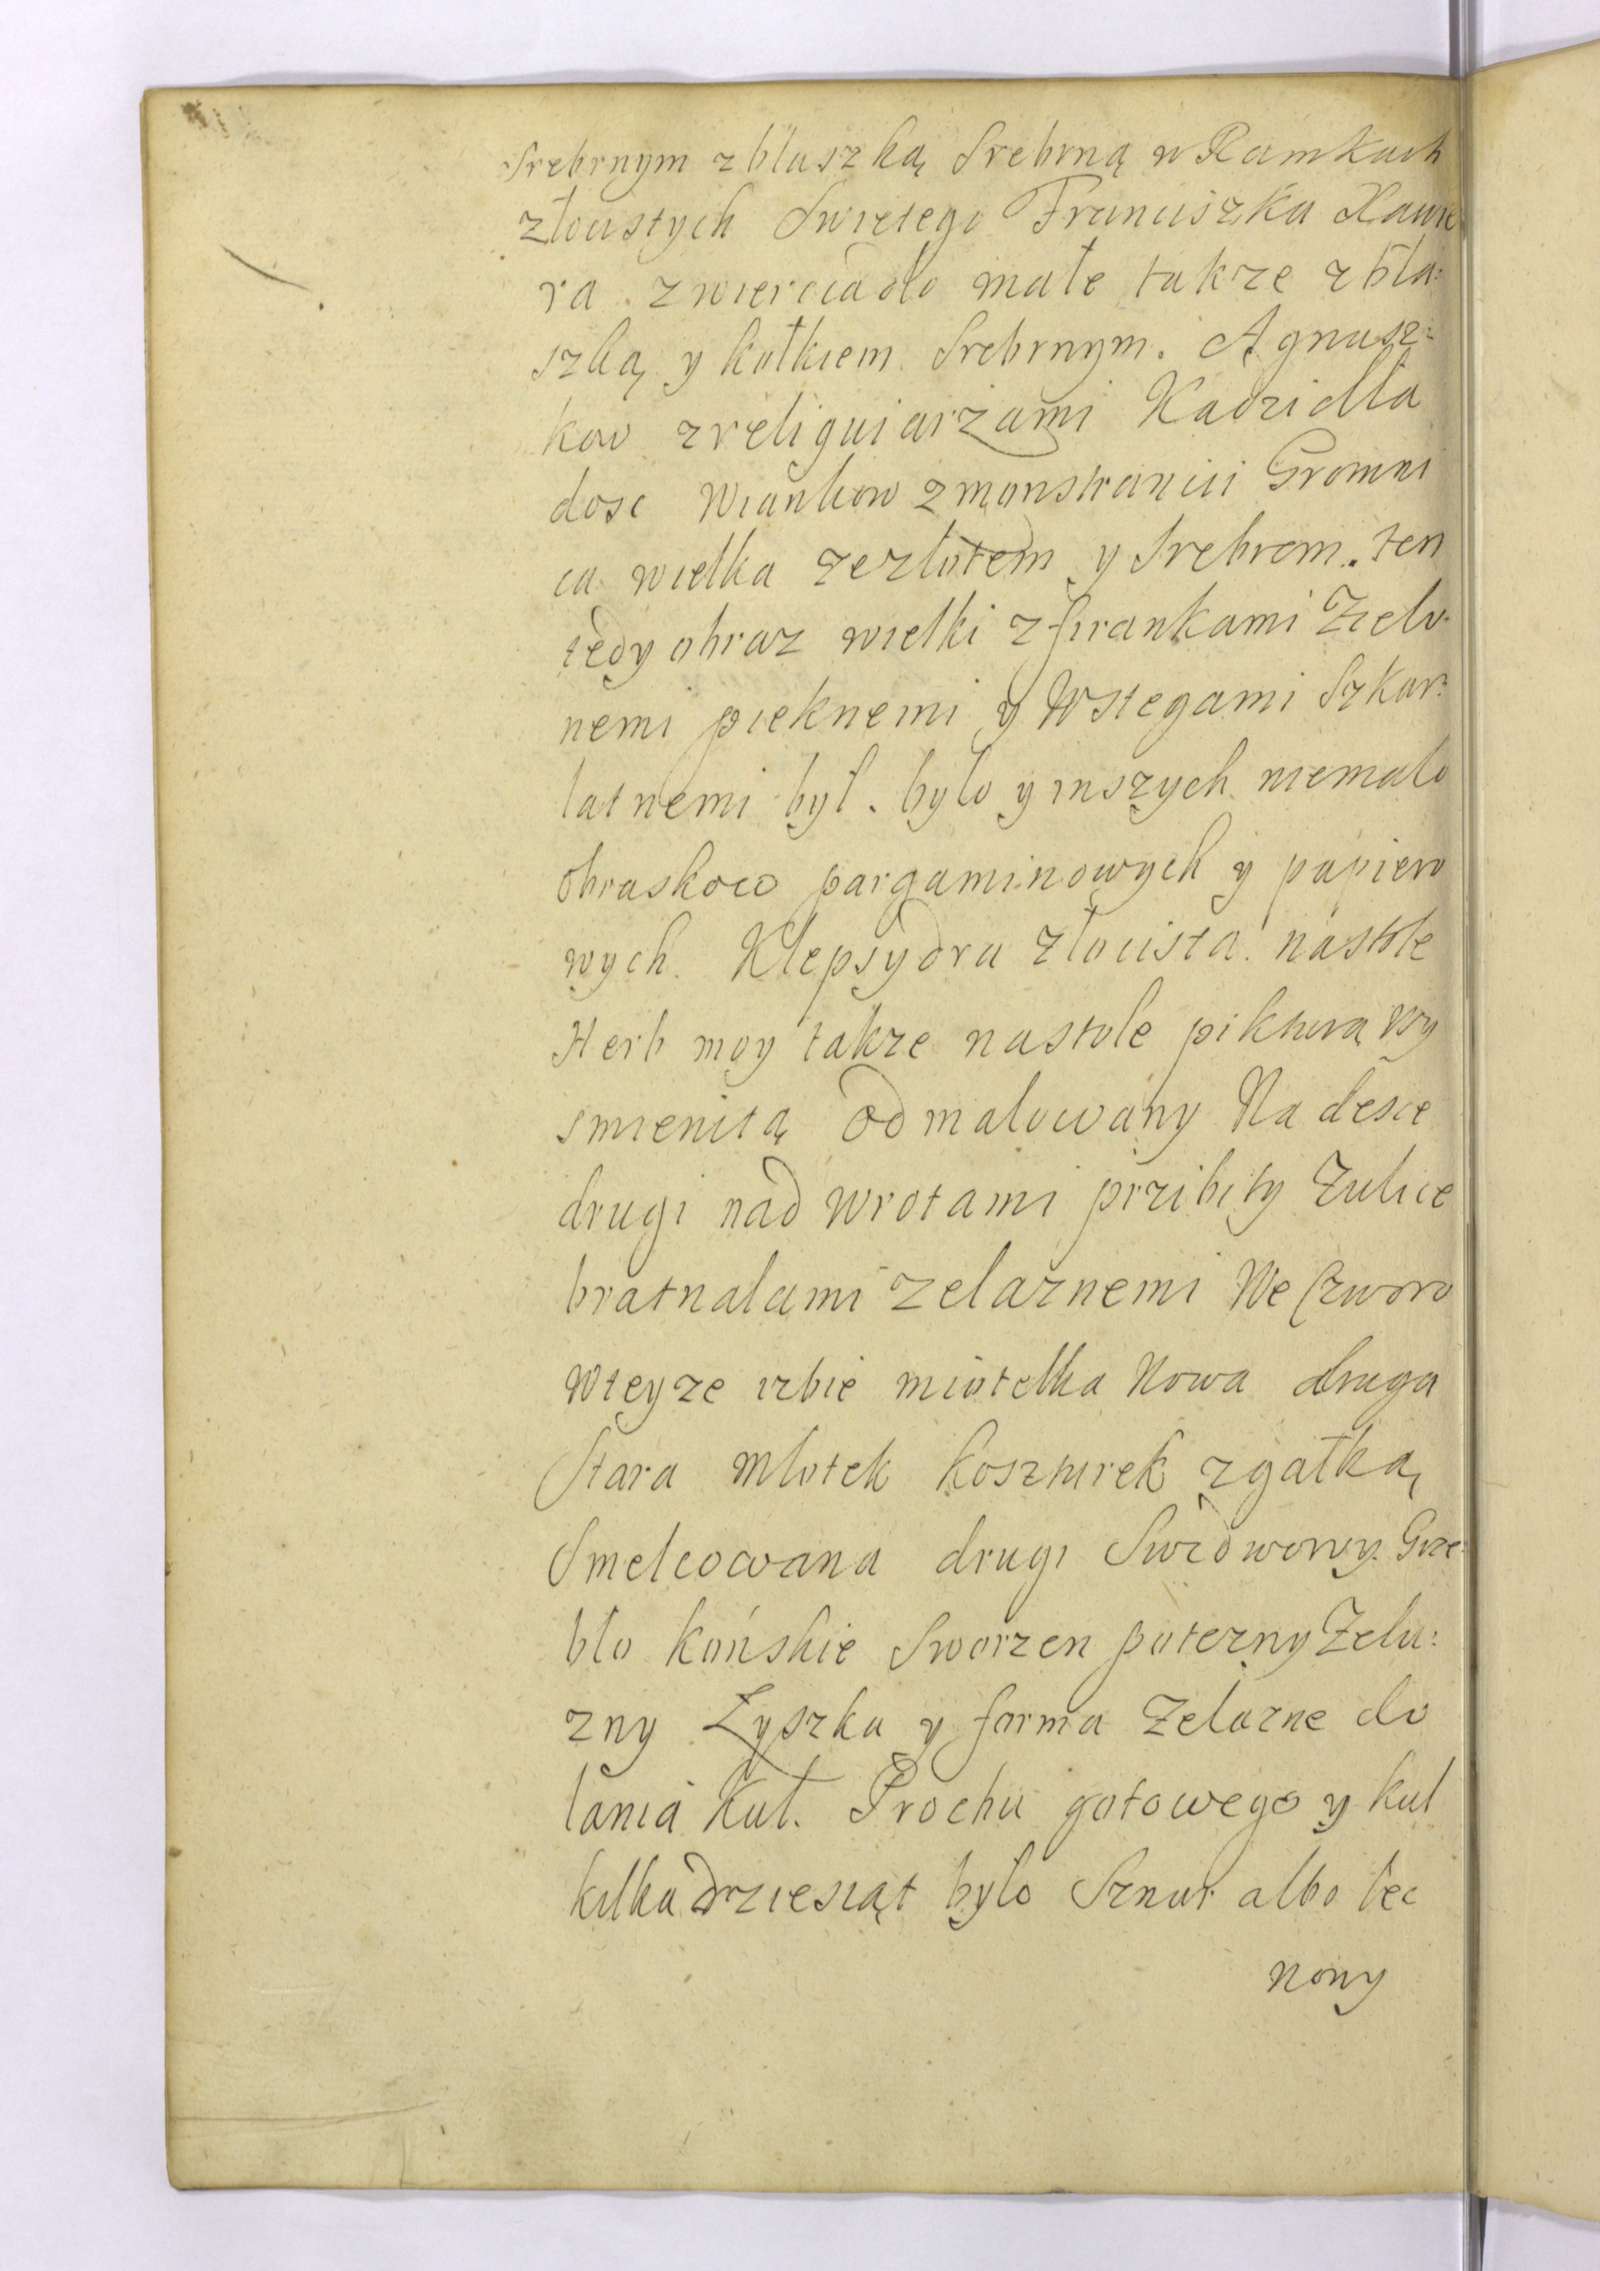 Srebrnym z blaszką Srebrną w Ramkach
złocistych Swietego Franciszka Xawie
ra zwierciadło małe takze z bla:
szką y kołkiem Srebrnym. Agnusz:
kow z religuiarzami Kadzidła
dosc Wiankow z monstrancii Gromni
ca wielka ze złotem y Srebrem. ten
tedy obraz wielki z firankami Zielo
nemi pieknemi y Wstegami Szkar:
latnemi był. było y inszych niemało
obraskow pargaminowych y papiero
wych. Klepsydra złocista na stole
Herb moy takze na stole pikturą wy
smienitą odmalowany Na desce
drugi nad wrotami przibity Zulice
bratnalami zelaznemi We czworo
w teyze izbie miotełka Nowa druga
Stara młotek koszturek z gałką
Smelcowana drugi Swidwowy. Grze:
bło końskie Sworzen poterzny Zela:
zny Łyszka y forma zelazne do
lania Kul. Prochu gotowego y kul
kilkadziesiąt było Sznur albo lec
nony